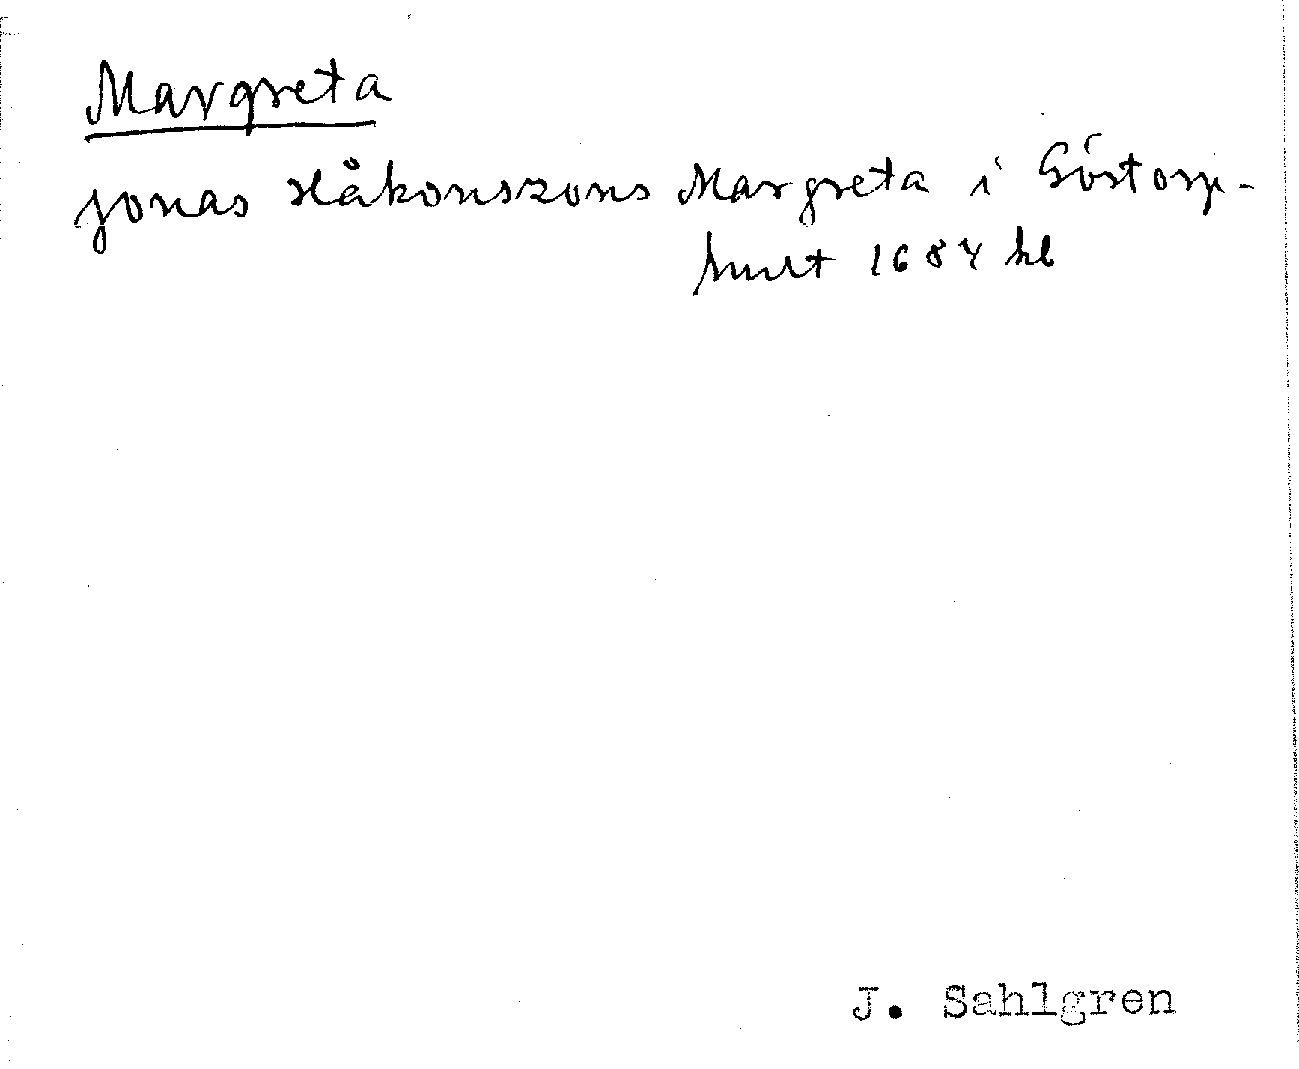 Margreta
Jonas Håkonszons Margreta i Göstorp-
hult 1684 hl
J. Sahlgren